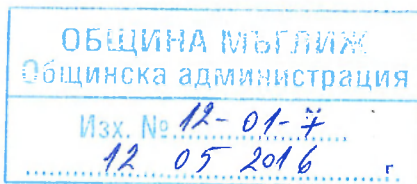 ОБЩИНА МЪГЛИЖ
Общинска администрация
Изх. № 12-01-7
12 05 2016 г.